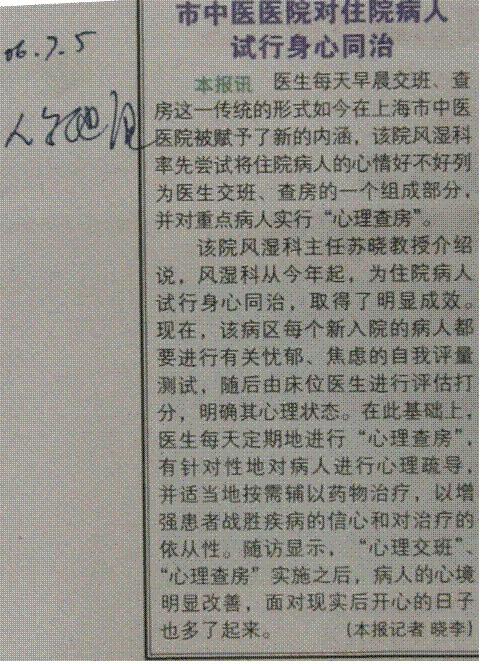 06.7.5
市中医医院对住院病人
试行身心同治
本报讯 医生每天早晨交班、查
房这一传统的形式如今在上海市中医
医院被赋予了新的内涵，该院风湿科
率先尝试将住院病人的心情好不好列
为医生交班、查房的一个组成部分，
并对重点病人实行“心理查房”。
该院风湿科主任苏晓教授介绍
说，风湿科从今年起，为住院病人
试行身心同治，取得了明显成效。
现在，该病区每个新入院的病人都
要进行有关忧郁、焦虑的自我评量
测试，随后由床位医生进行评估打
分，明确其心理状态。在此基础上，
医生每天定期地进行“心理查房”，
有针对性地对病人进行心理疏导，
并适当地按需辅以药物治疗，以增
强患者战胜疾病的信心和对治疗的
依从性。随访显示，“心理交班”、
“心理查房”实施之后，病人的心境
明显改善，面对现实后开心的日子
也多了起来。 （本报记者 晓李）